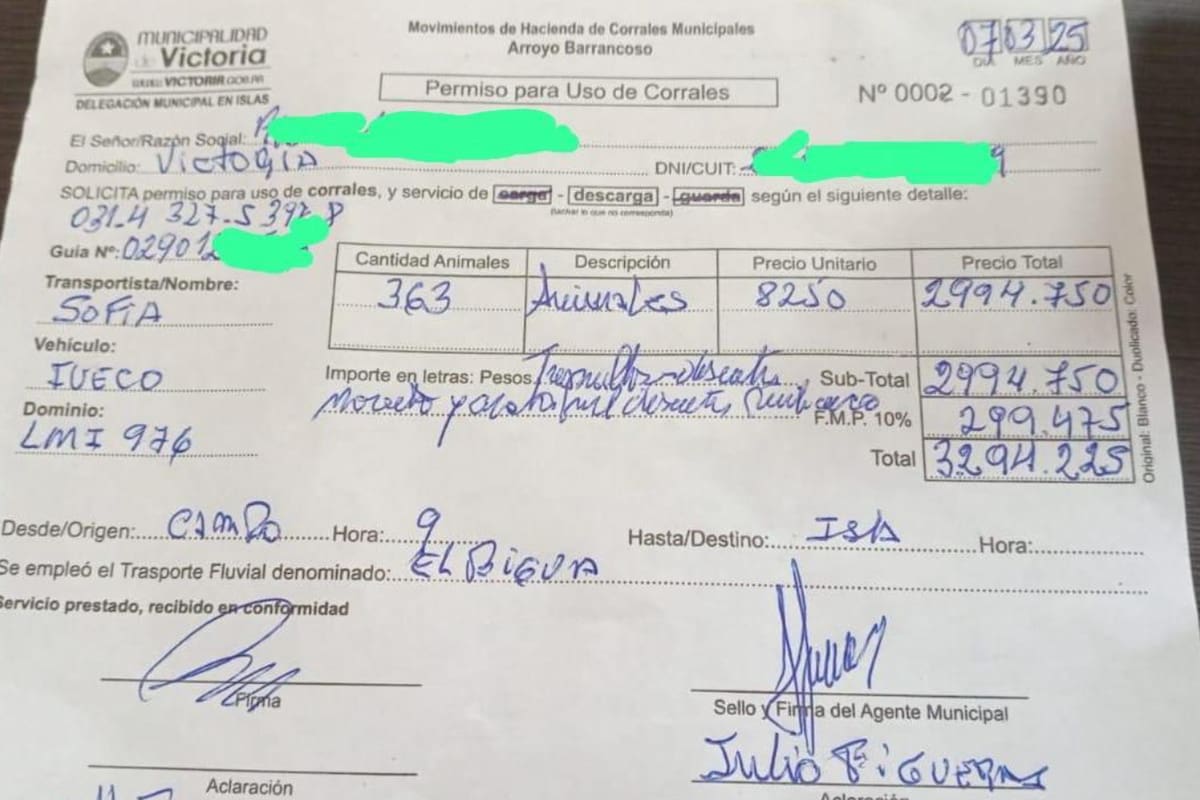 MUNICIPALIDAD
de Victoria
WWW.VICTORIA.GOB.AR
DELEGACIÓN MUNICIPAL EN ISLAS
Movimientos de Hacienda de Corrales Municipales
Arroyo Barrancoso
Permiso para Uso de Corrales
07 03 25
DIA MES AÑO
Nº 0002 - 01390
El Señor/Razón Social:
Domicilio: Victoria DNI/CUIT: 9
SOLICITA permiso para uso de corrales, y servicio de carga - descarga - guarda según el siguiente detalle:
(tachar lo que no corresponda)
031.4 327.5
Guía Nº: 029012
Transportista/Nombre:
SOFIA
Vehículo:
IVECO
Dominio:
LMI 976
Cantidad Animales Descripción Precio Unitario Precio Total
363 Animales 8250 2994.750
Importe en letras: Pesos
Sub-Total 2994.750
F.M.P. 10% 299.475
Total 3294.225
Original: Blanco - Duplicado: Color
Desde/Origen: CAMPO Hora: 9 Hasta/Destino: ISLA Hora:
Se empleó el Trasporte Fluvial denominado: EL BIGUA
Servicio prestado, recibido en conformidad
Firma
Sello y Firma del Agente Municipal
Julio Figueras
Aclaración
Aclaración